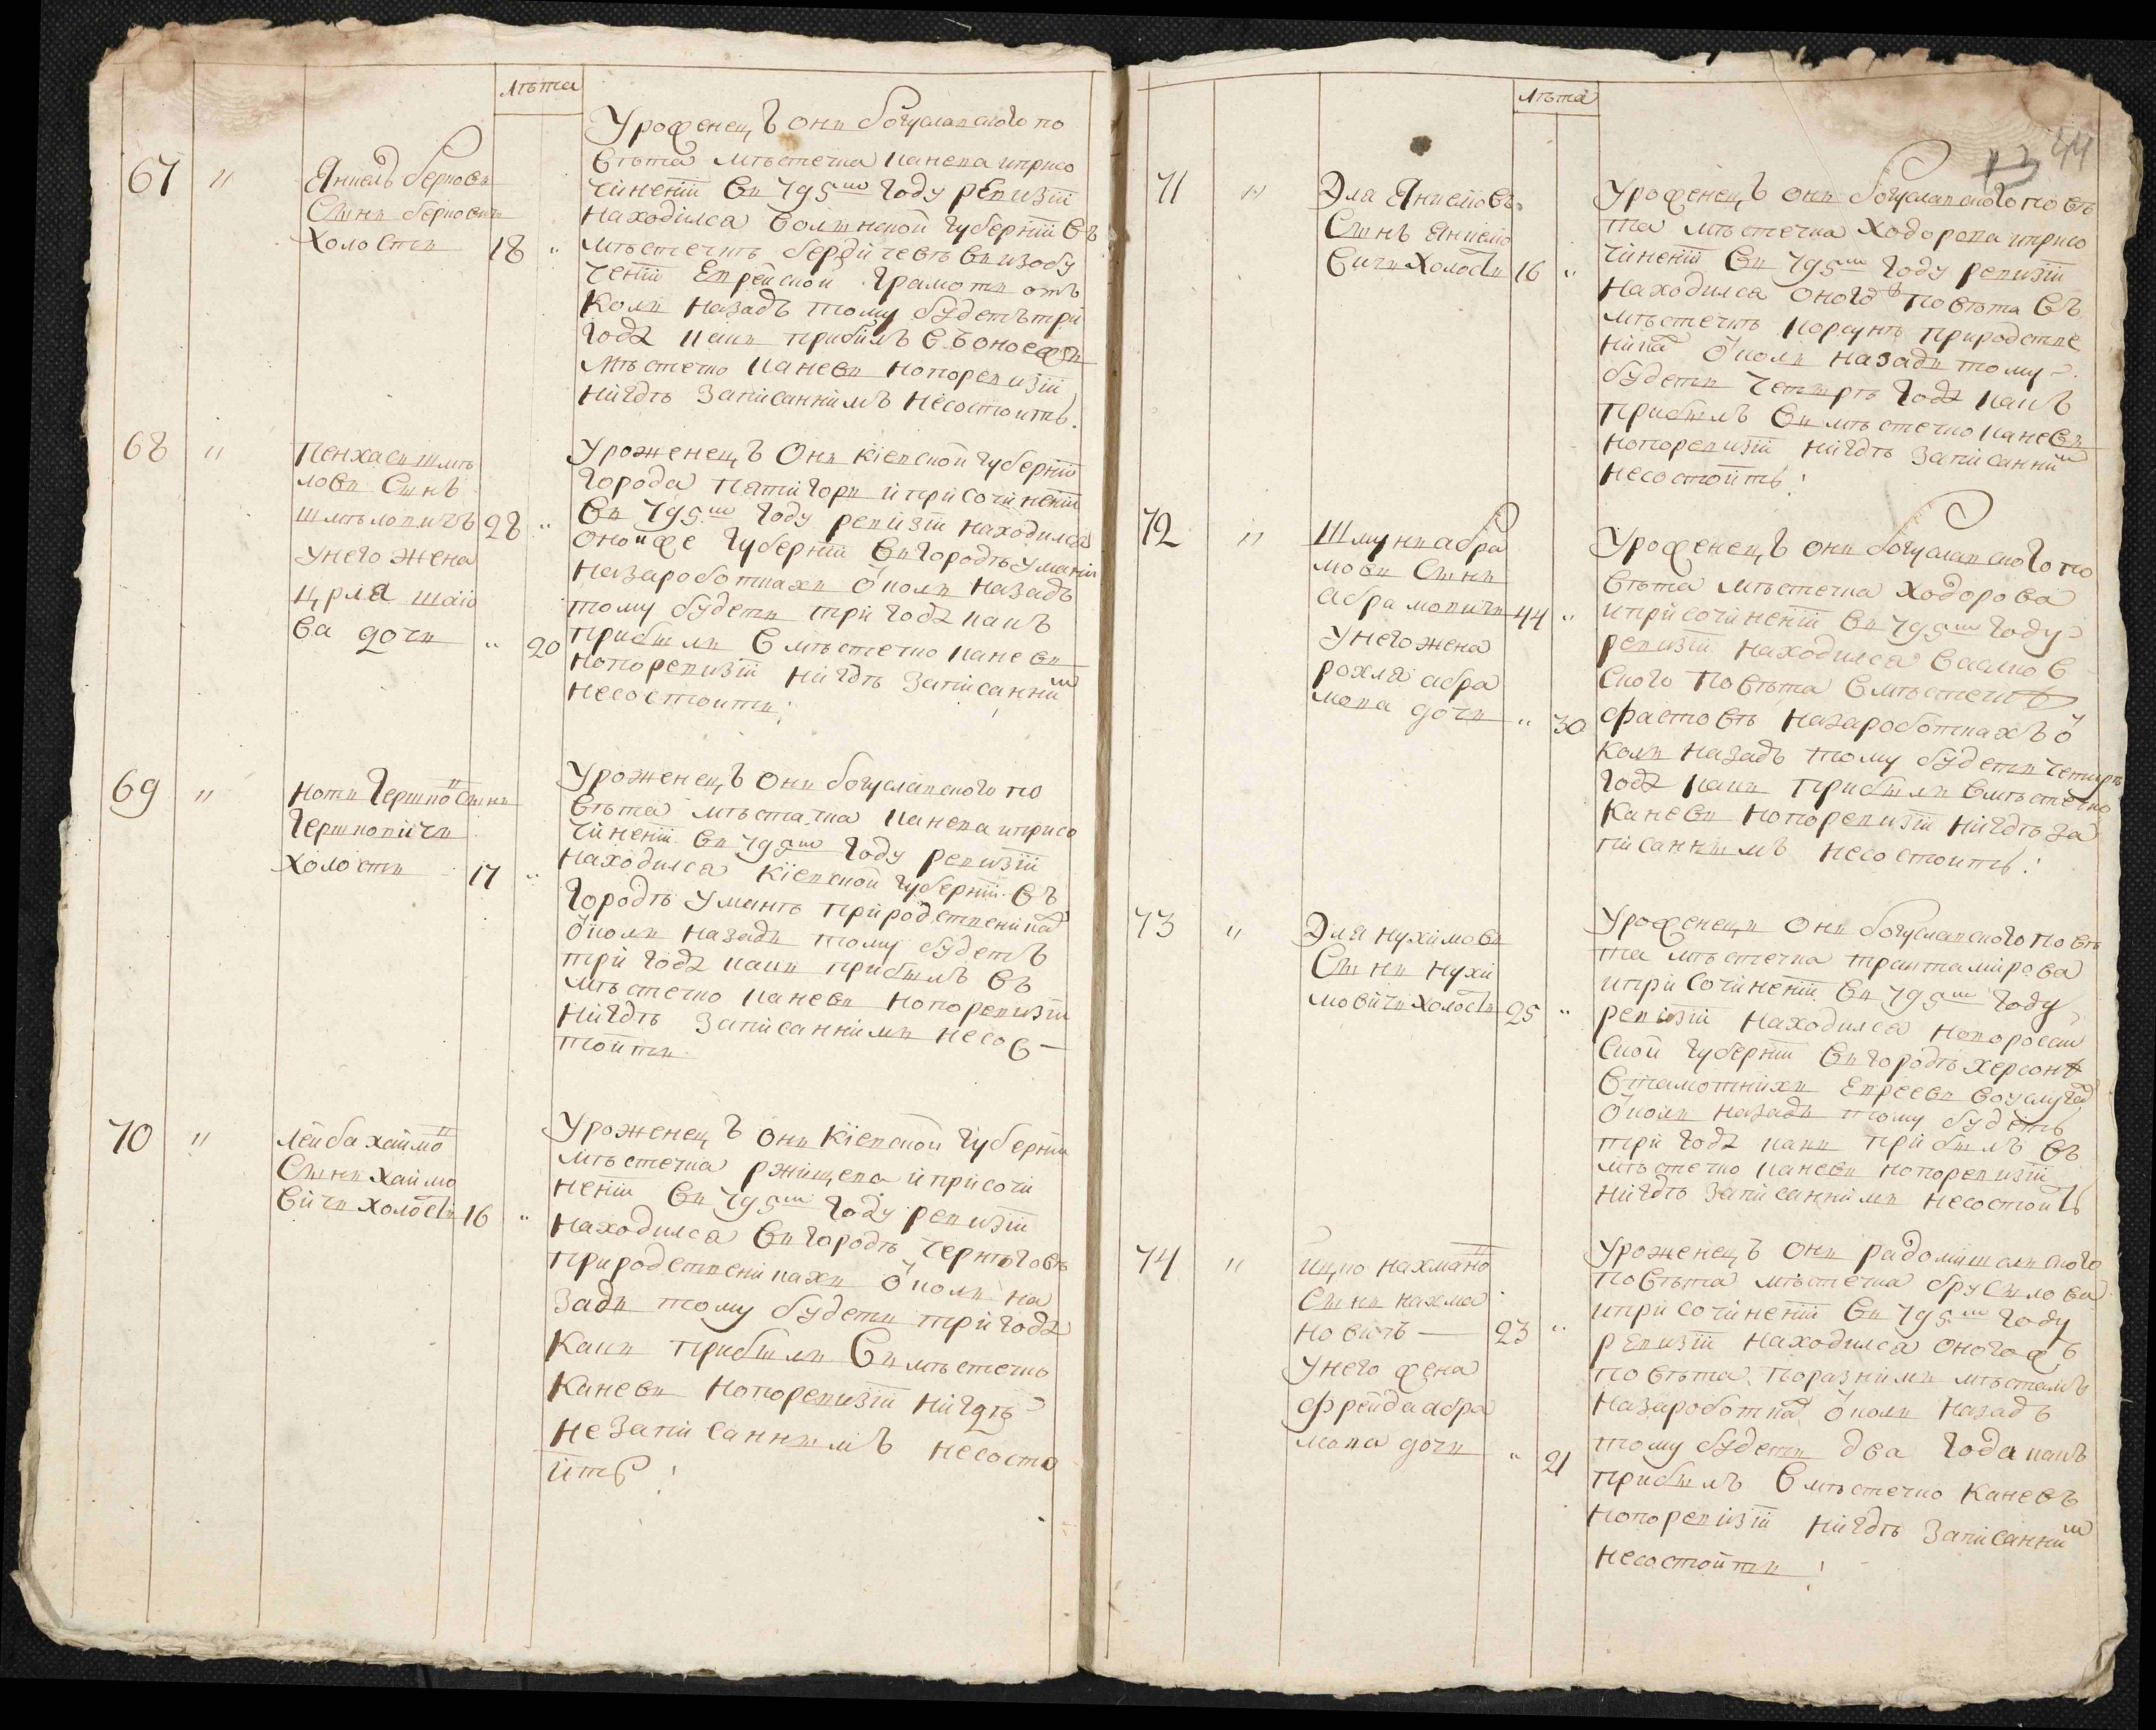 лѣта
67 "
Янкель берковъ
Сынъ берковичь
Холостъ 18 "
Уроженецъ онъ богуславского по
вѣта мѣстечка канева иприсо
чиненіи въ 795мъ Году ревизіи
находілса волинской губерніи въ
мѣстечкѣ бердичевѣ визобу
ченіи Еврейской грамоти отъ
Коли назадъ тому будетъ три
Года какъ прибилъ въ оноежъ
мѣстечко каневъ нопоревизіи
нигдѣ записаннимъ несостоитъ.
68 "
Пенхасъ шмѣ
ловъ Сынъ
шмѣловичъ 28 "
Унего жена
цɪрля шаіо
ва дочъ " 20
Уроженецъ Онъ кіевской губерніи
города пятигоръ ипри сочиненіи
въ 795мъ Году ревизіи находилса
оноиже губерніи въгородѣ умани
назароботкахъ околъ назадъ
тому будетъ три Года какъ
прибылъ вмѣстечко каневъ
нопоревизіи нигдѣ записаннимъ
несостоитъ:
69 "
нотъ Гершковъ Сынъ
Гершковичъ
холостъ 17 "
Уроженецъ онъ богуславского по
вѣта мѣстачка канева иприсо
чиненіи въ 795мъ Году ревизіи
находилса кіевской губерніи въ
Городѣ уманѣ природственика
околъ назадъ тому будетъ
три Года какъ прибылъ въ
мѣстечко каневъ нопоревизіи
нигдѣ записаннимъ несос—
тоитъ
70 "
Лейба хаимовъ
Сынъ хаимо
вичъ холостъ 16 "
Уроженецъ онъ кіевской губерніи
мѣстечка ржищева ипри сочи
неніи въ 795мъ Году ревизіи
находилса въгородѣ черніговѣ
природственикахъ околъ на
задъ тому будетъ три Года
Какъ прибылъ въмѣстечко
каневъ нопоревизіи нигдѣ
незаписаннымъ несосто
итъ!
44
лѣта
71 "
Эля Янкелювъ
Сынъ Янкелю
вичъ Холостъ 16 "
Уроженецъ онъ богуславского повѣ
та мѣстечка ходорова иприсо
чиненіи въ 795мъ Году ревизіи
находилса оногожъ повѣта въ
мѣстечкѣ корсунѣ природстве
ника околъ назадъ тому
будетъ четырѣ Года какъ
прибылъ въмѣстечко каневъ
нопоревизіи нигдѣ записаннимъ
несостоитъ!
72 "
Шмунъ абра
мовъ Сынъ
абрамовичъ 44 "
Унего жена
рохля абра
мова дочъ " 30
Уроженецъ онъ богуславского по
вѣта мѣстечка ходорова
ипри сочиненіи въ 795мъ Году
ревизіи находилса васков
ского повѣта вмѣстечкѣ
фастовѣ назароботкахъ о
коли назадъ тому будетъ четырѣ
Года какъ прибылъ вмѣстечко
каневъ нопоревизіи нигдѣ за
писаннымъ несостоитъ!
73 "
Эля нухимовъ
Сынъ нухи
мовичъ холостъ 25 "
Уроженецъ онъ богуславского повѣ
та мѣстечка трахтамирова
ипри сочиненіи въ 795мъ Году
ревизіи находилса новоросий
ской губерніи въгородѣ херсонѣ
втамошнихъ Евреевъ воуслуга
околъ назадъ тому будетъ
три Года какъ прибылъ въ
мѣстечко каневъ нопоревизіи
нигдѣ записаннимъ несостоитъ
74 "
ицко нахмановъ
Сынъ нахма
новичъ — 23 "
унего жена
фрейда абра
мова дочъ " 21
Уроженецъ онъ радомишлского
повѣта мѣстечка брусилова
ипри сочиненіи въ 795мъ Году
ревизіи находилса оногожъ
повѣта поразнимъ мѣстамъ
назароботка околъ назадъ
тому будетъ два Года какъ
прибылъ вмѣстечко каневъ
нопоревизіи нигдѣ записаннимъ
несостоитъ!